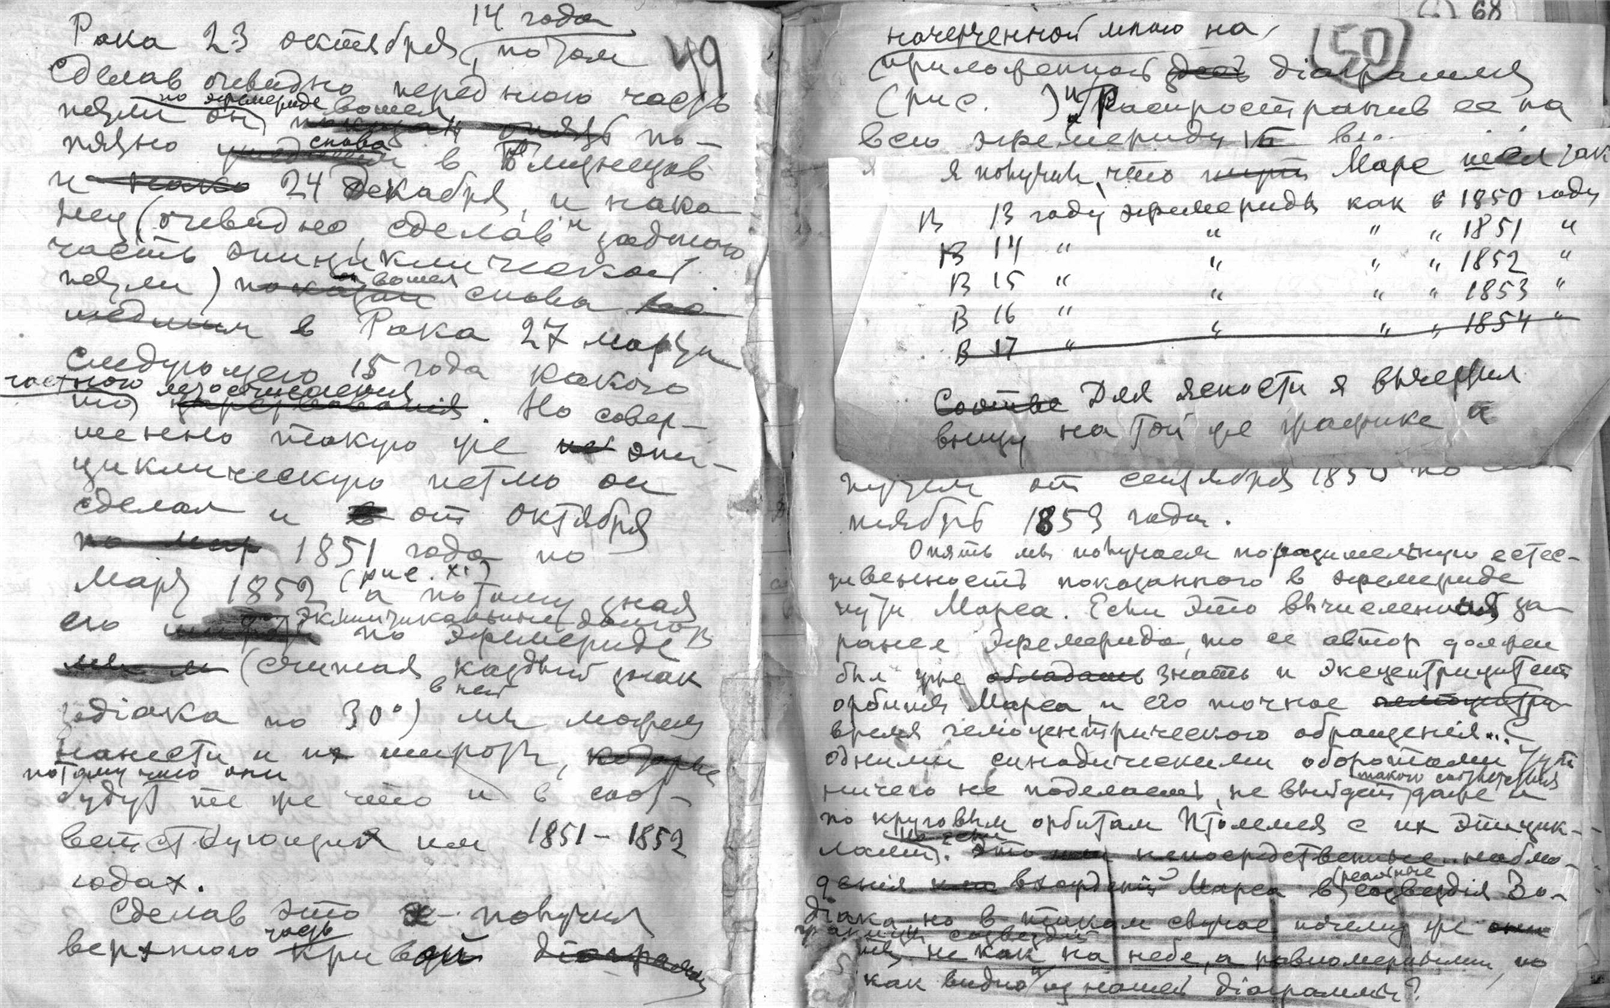 14 года
49
Рака 23 октября, потом
сделав очевидно переднюю часть
петли он по эфемериде вошел
снова в Близнецов
и 24 декабря, и нако
нец (очевидно сделав и заднюю
часть эпициклической
петли) вошел снова
в Рака 27 марта
следующего 15 года какого
то частного летосчисления. Но совер-
шенно такую же эпи-
циклическую петлю он
сделал и от октября
1851 года по
Март 1852 (рис. XI) а потому зная
его эклиптикальный по эфемериде
(считая каждый знак
зодіака в ней по 30°) мы можем
нанести и их широты,
потому что они
будут те же что и в соот-
ветствующих им 1851-1852
годах.
Сделав это я получил
верхнюю часть кривой діаграммы
68
50
начерченной мною на
приложенной діаграмме
(рис. ) и Распространив ее на
всю эфемериду
я получил, что Марс шел так
В 13 году эфемериды как в 1850 году
В 14 " " " " 1851 "
В 15 " " " " 1852 "
В 16 " " " " 1853 "
В 17 " " " " 1854 "
Для ясности я вычертил
внизу на той же графике и
от сентября 1850 по
тябрь 1853 года.
Опять мы получаем поразительную естес-
твенность показанного в эфемериде
пути Марса. Если это вычисленная за
ранее эфемерида, то ее автор должен
был уже обладать знать и эксцентрицитет
орбиты Марса и его точное
время геліоцентрического обращенія...
одними синодическими оборотами тут
ничего не поделаешь, не выйдет такого соответствия даже и
по круговым орбитам Птолемея с их эпицик-
лами. Это непосредственные наблю-
денія вхождений Марса в реальные созвездія Зо-
діака но в таком случае почему же они
границы созвездий
не как на небе, а равномерными, но
как видно из нашей діаграммы?